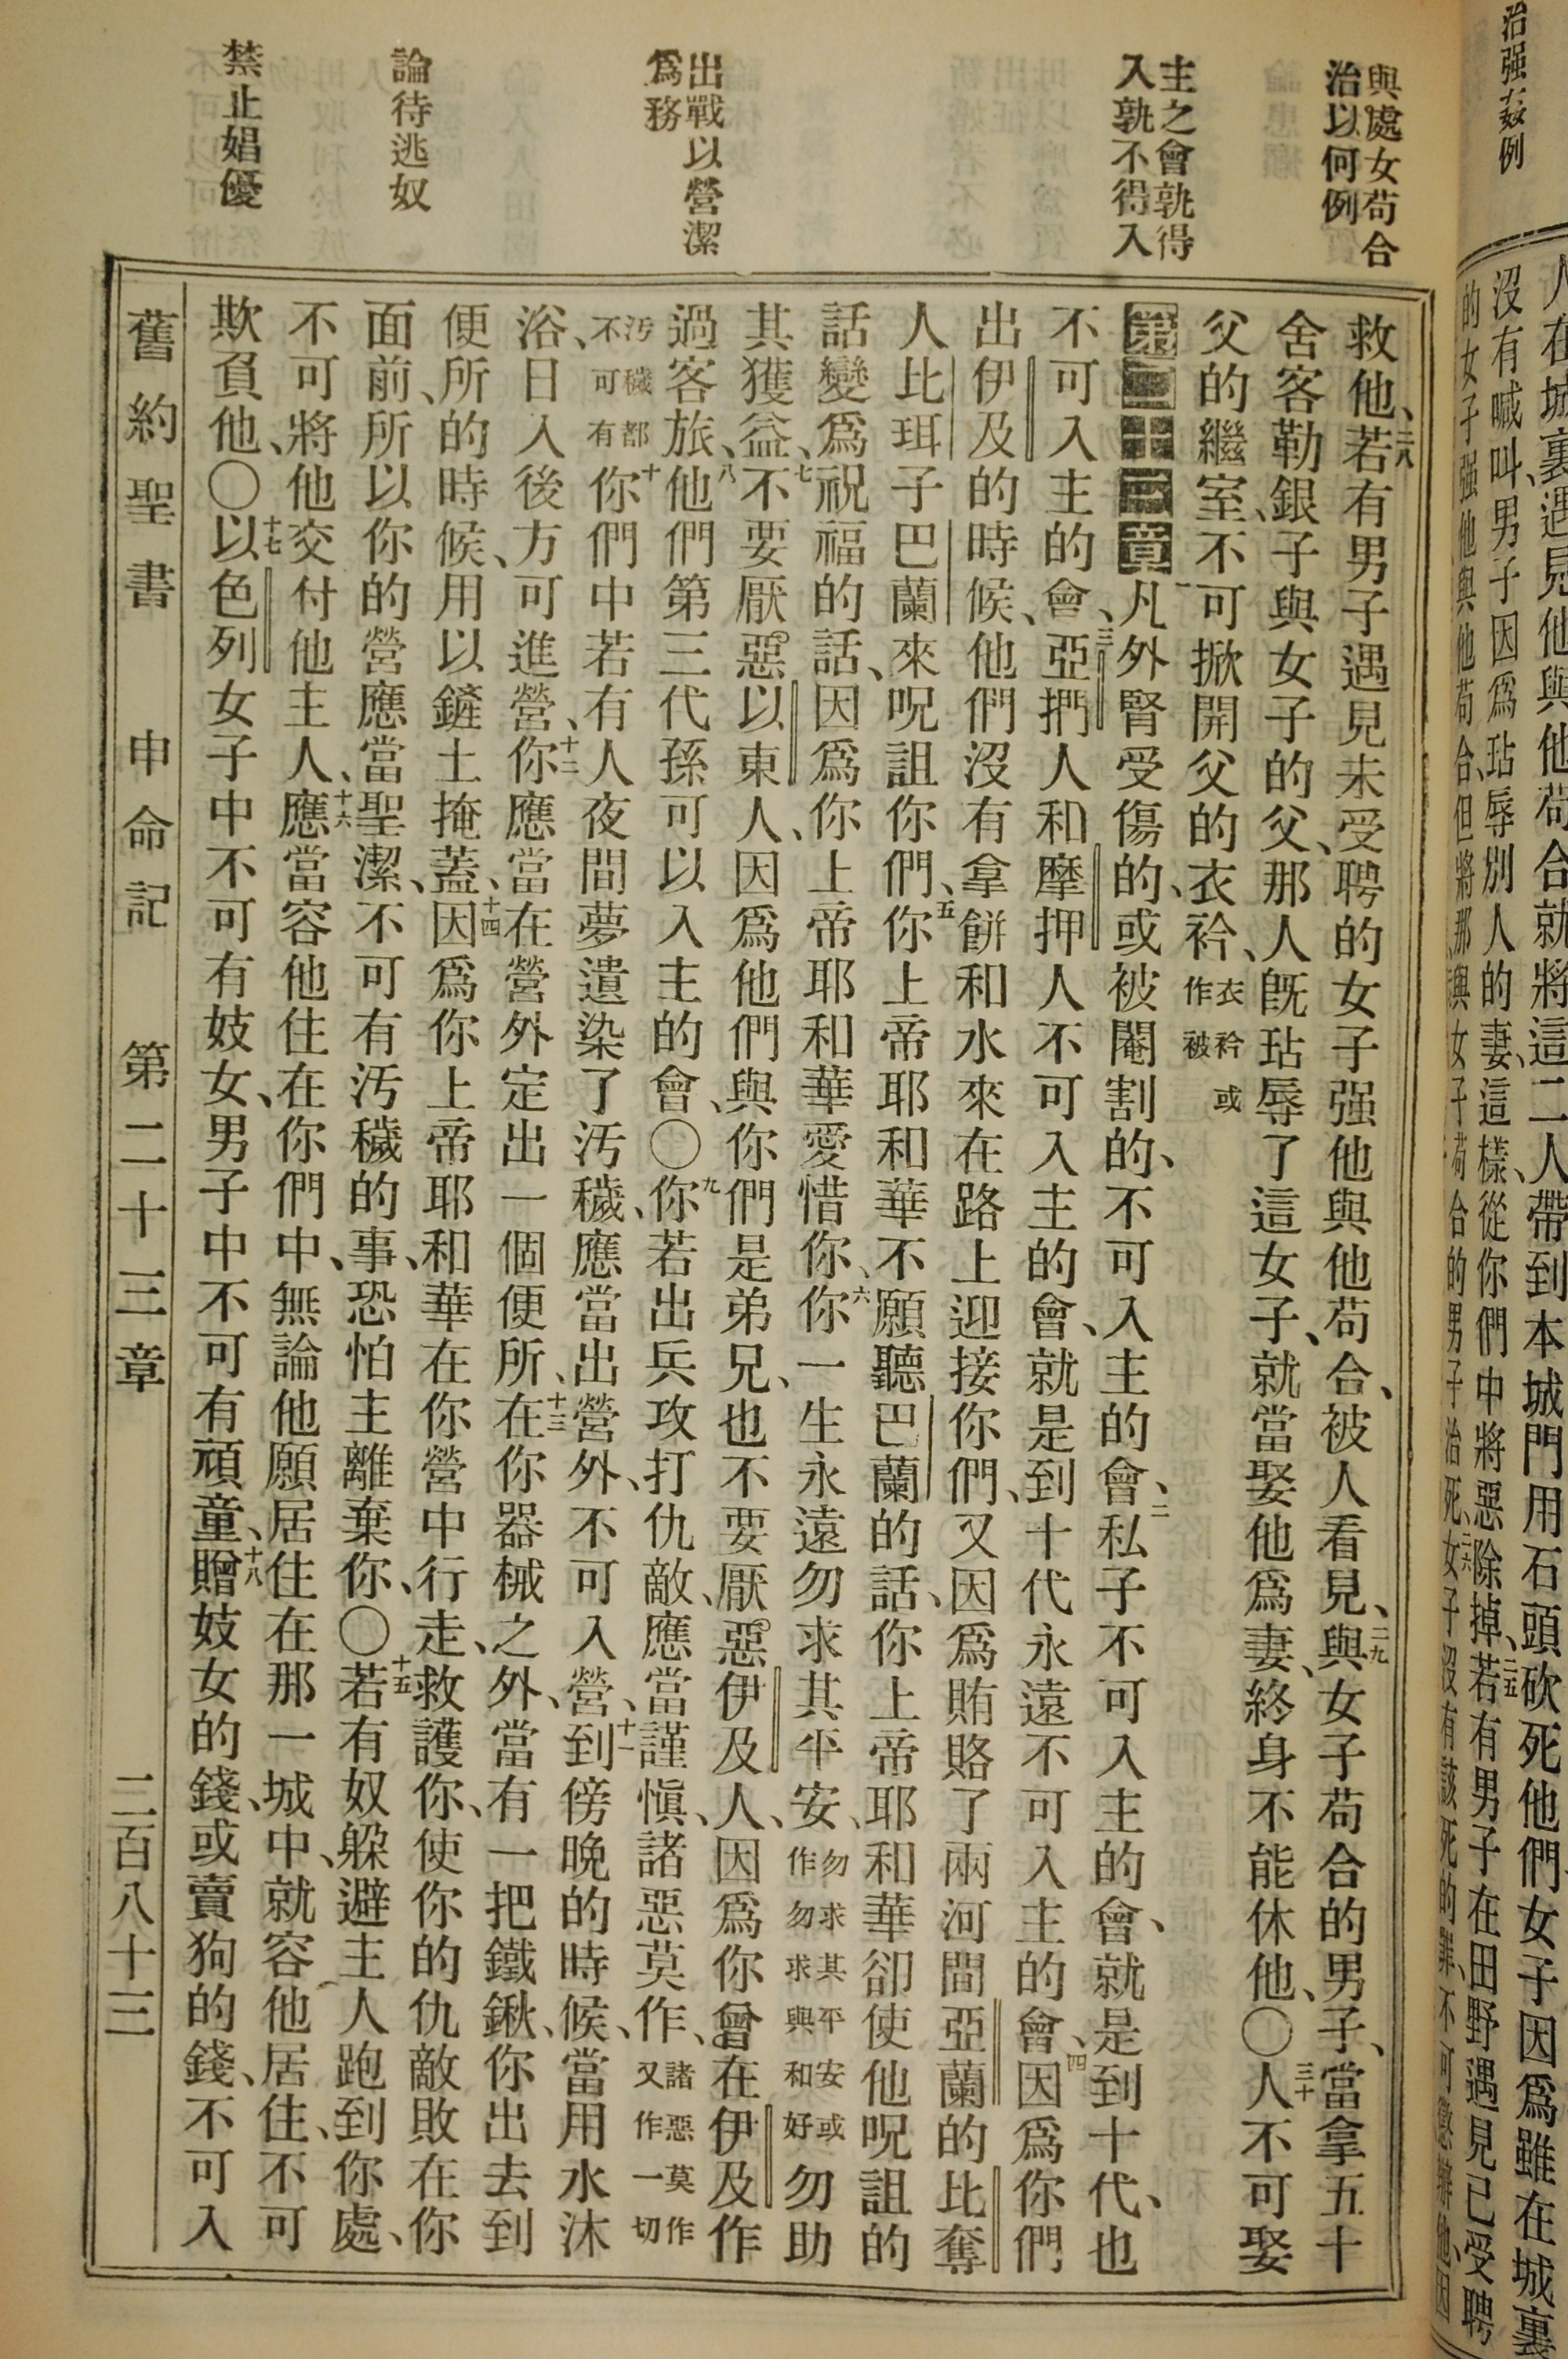 治强姦例
與處女苟合
治以何例
主之會孰得
入孰不得入
出戰以營潔
爲務
論待逃奴
禁止娼優
人在城裏遇見他與他苟合就將這二人帶到本城門用石頭砍死他們女子因爲雖在城裏
沒有喊叫、男子因爲玷辱別人的妻、這樣、從你們中將惡除掉、二五若有男子在田野遇見已受聘
的女子强他與他苟合、但將那與女子苟合的男子治死、二六女子沒有該死的罪、不可
救他、二八若有男子遇見未受聘的女子强他與他苟合、被人看見、二九與女子苟合的男子、當拿五十
舍客勒銀子與女子的父、那人旣玷辱了這女子、就當娶他爲妻、終身不能休他、〇三十人不可娶
父的繼室、不可掀開父的衣衿、衣衿或作被
第二十三章一凡外腎受傷的、或被閹割的、不可入主的會、二私子不可入主的會、就是到十代、也
不可入主的會、三亞捫人和摩押人不可入主的會、就是到十代永遠不可入主的會、四因爲你們
出伊及的時候、他們沒有拿餅和水來在路上迎接你們、又因爲賄賂了兩河間亞蘭的比奪
人比珥子巴蘭來呪詛你們、五你上帝耶和華不願聽巴蘭的話、你上帝耶和華卻使他呪詛的
話變爲祝福的話、因爲你上帝耶和華愛惜你、六你一生永遠勿求其平安、勿求其平安或作勿求與和好勿助
其獲益、七不要厭惡以東人、因爲他們與你們是弟兄、也不要厭惡伊及人、因爲你曾在伊及作
過客旅、八他們第三代孫可以入主的會、〇九你若出兵攻打仇敵、應當謹愼、諸惡莫作、諸惡莫作又作一切
汚穢都不可有十你們中若有人夜間夢遺染了汚穢、應當出營外、不可入營、十一到傍晚的時候、當用水沐
浴、日入後方可進營、十二你應當在營外定出一個便所、十三在你器械之外、當有一把鐵鍬、你出去到
便所的時候、用以鏟土掩蓋、十四因爲你上帝耶和華在你營中行走、救護你、使你的仇敵敗在你
面前、所以你的營應當聖潔、不可有汚穢的事、恐怕主離棄你、〇十五若有奴躱避主人跑到你處、
不可將他交付他主人、十六應當容他住在你們中、無論他願居住在那一城中、就容他居住、不可
欺負他、〇十七以色列女子中不可有妓女、男子中不可有頑童、十八贈妓女的錢、或賣狗的錢、不可入
舊約聖書 申命記 第二十三章 二百八十三